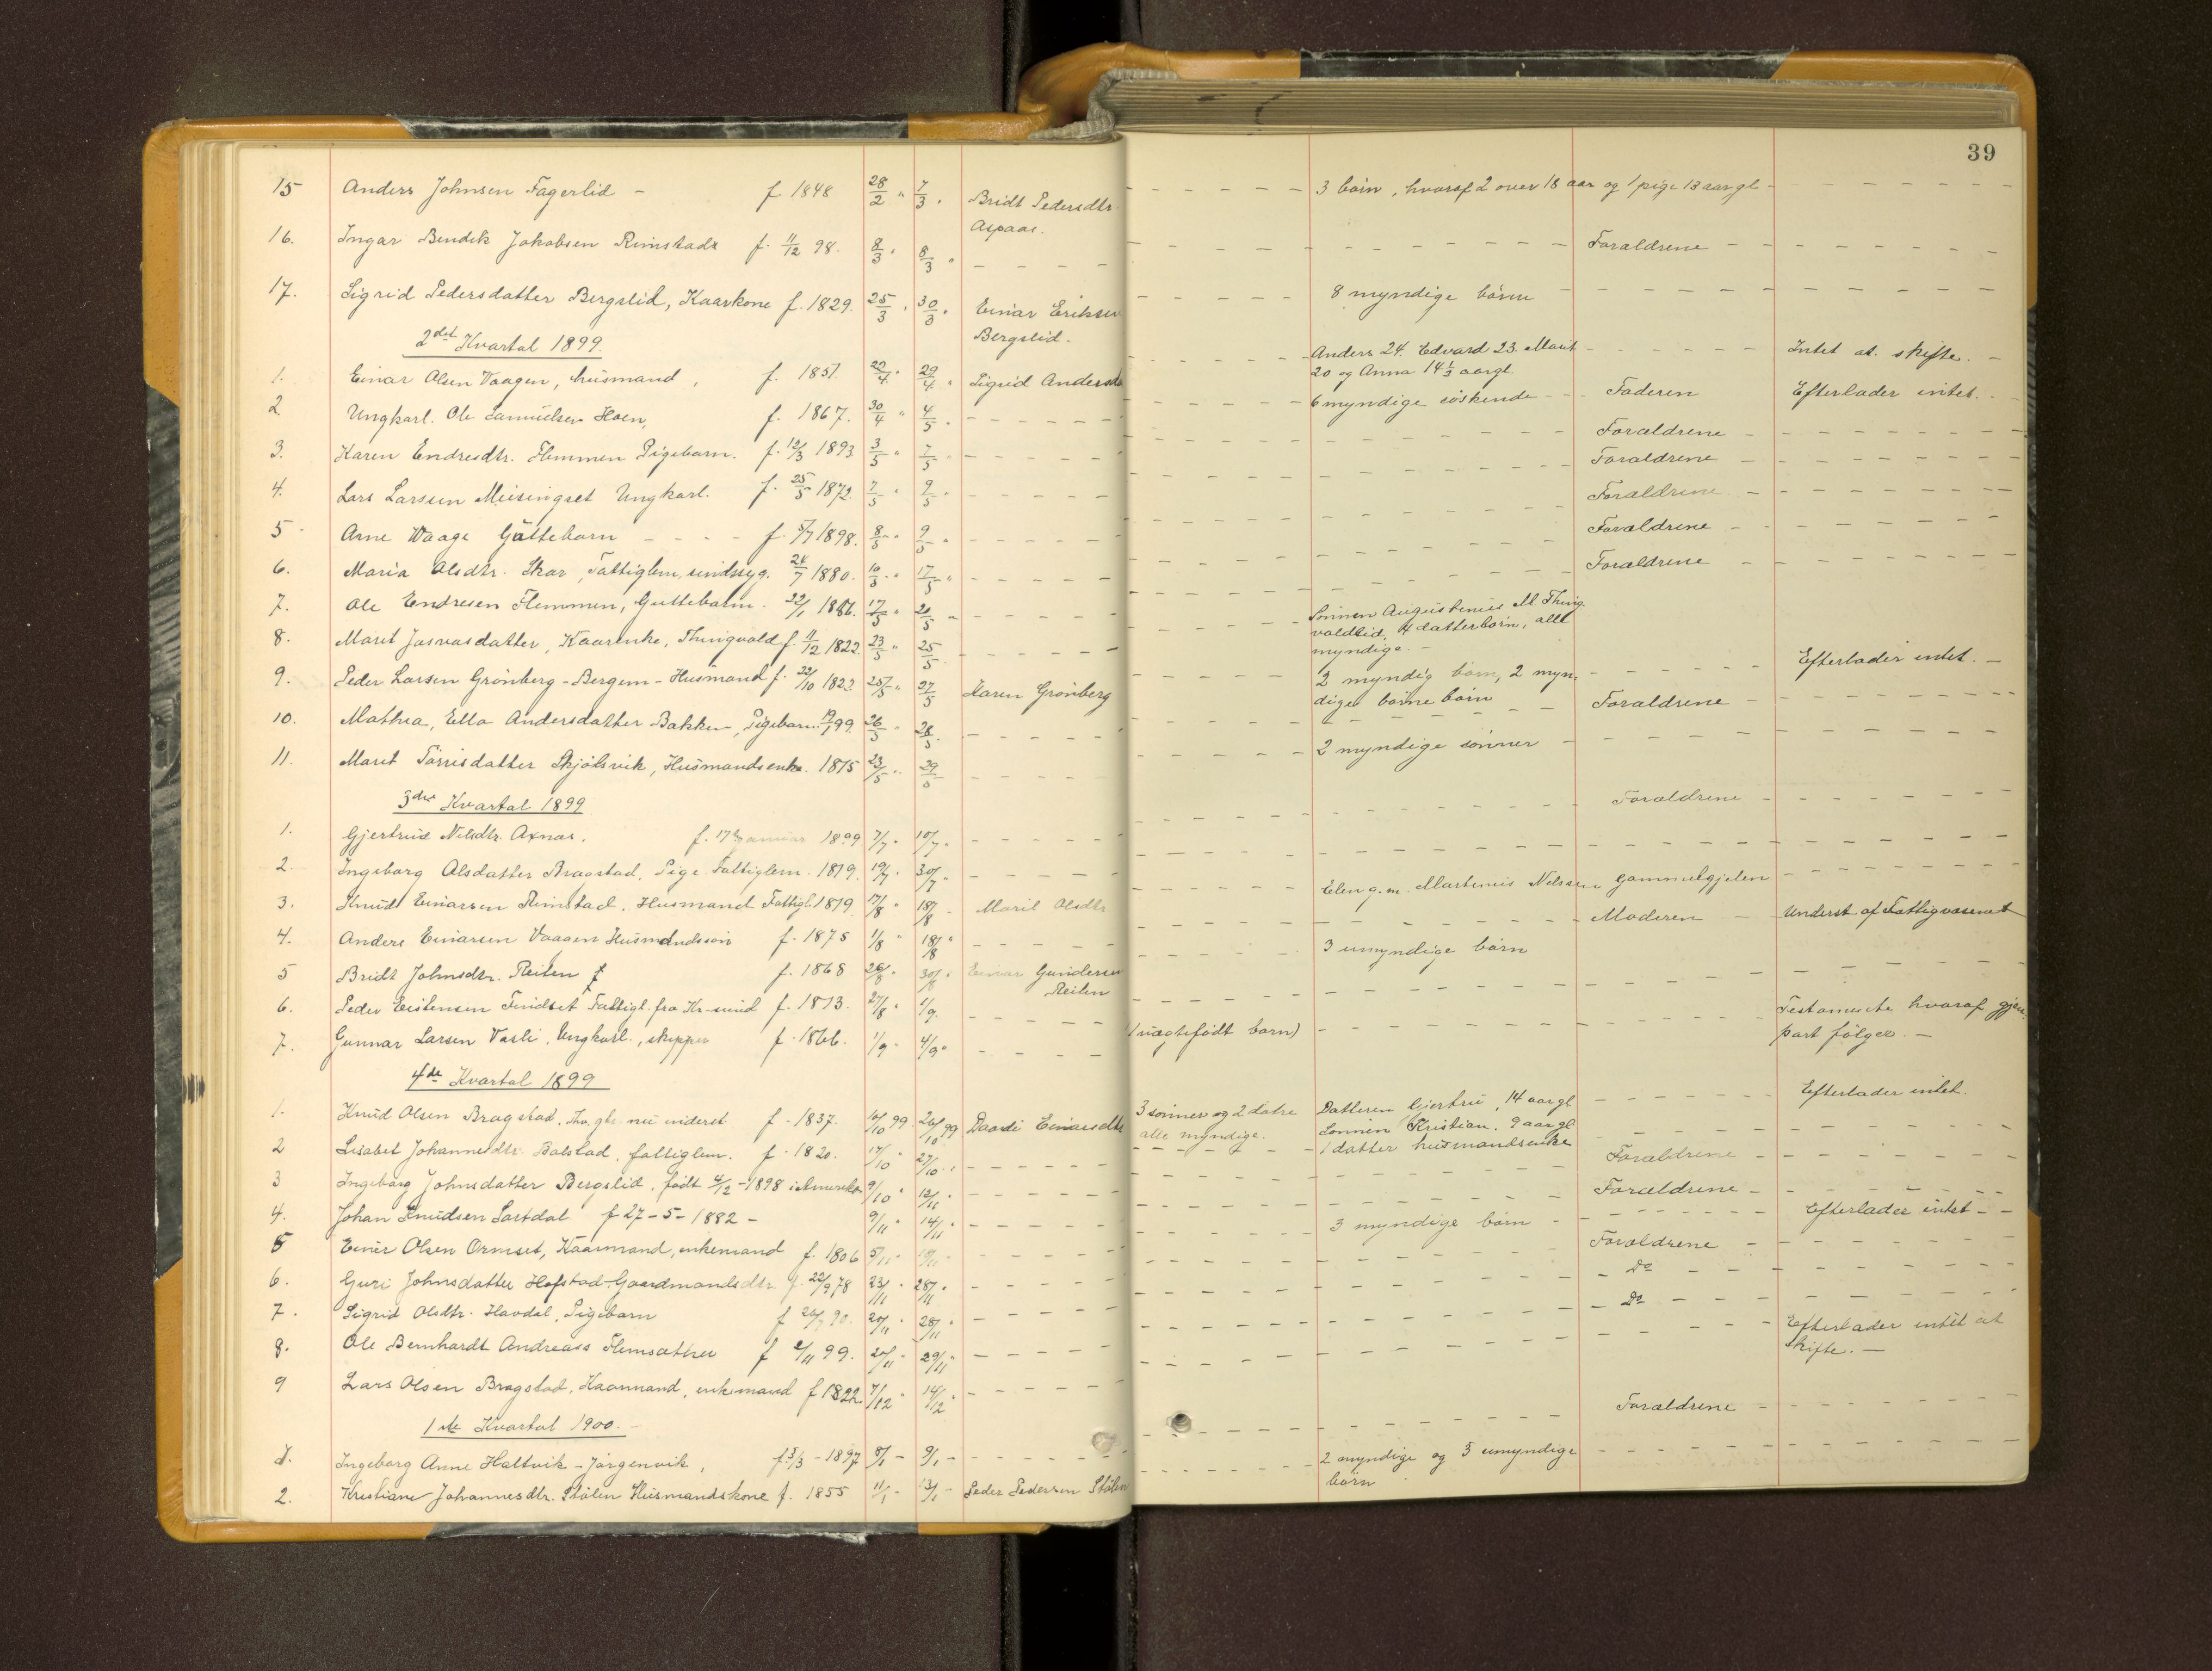 39
15 Anders Johnsen Fagerlid - f 1848 28/2 " 7/3 " Bridt Pedersdtr. 3 börn, hvoraf 2 over 18 aar og 1 pige 13 aar gl.
Aspaas.
16. Ingar Bendik Jakobsen Rimstad f. 11/12 98. 8/3 " 8/3 " Foraldrene
17. Sigrid Pedersdatter Bergslid, Kaarkone f. 1829. 25/3 " 30/3 " Einar Eriksen 8 myndige börn
Bergslid.
2det Kvartal 1899.
1. Einar Olsen Vaagen, husmand, f. 1851. 22/4 " 29/4 " Sigrid Andersd Anders 24. Edvard 23. Marit Intet at skifte.
20 og Anna 14 1/3 aargl.
2 Ungkarl. Ole Samuelsen Hoen, f. 1867. 30/4 " 4/5 " 6 myndige söskende Faderen Efterlader intet.
3. Karen Endresdtr. Flemmen Pigebarn. f. 12/3 1893 3/5 " 7/5 " Foraldrene
4. Lars Larssen Meisingset Ungkarl. f. 25/5 1872. 7/5 " 9/5 " Foraldrene
5 Arne Waage Guttebarn f. 5/7 1898. 8/5 " 9/5 " Foraldrene
6. Maria Olsdtr. Skar, Fattiglem, sindssyg. 24/7 1880. 10/5 " 17/5 " Foraldrene
7. Ole Endresen Flemmen, Guttebarn. 22/1 17/5 " 20/5 Foraldrene
8. Marit Jasvasdatter, Kaarenke, Thingvold f. 11/12 1822. 23/5 " 25/5 Sönnen Augustinus M. Thing
voldlid, 4 datterbörn, alle
myndige.
9. Peder Larsen Grönberg - Bergem - Husmand f. 22/10 1822 25/5 " 27/5 Karen Grönberg 2 myndig börn, 2 myn- Efterlader intet.
dige börne börn
10. Mathea, Ella Andersdatter Bakken, Pigebarn 99. 26/5 " 28/5 Foraldrene
11. Marit Törrisdatter Skjölsvik, Husmandsenke. 1815 23/5 " 29/5 2 myndige sönner
3die Kvartal 1899
1. Gjertrud Nilsdtr. Axnas. f. 17de januar 1899 7/7 " 10/7 " Foraldrene
2. Ingeborg Olsdatter Bragstad, Pige Fattiglem. 1819. 19/7 " 30/7 "
3. Knud Einarsen Rimstad. Husmand Fattigl. 1819. 17/8 " 18/8 Marit Olsdtr Elen g. m. Martinus Nilsen Gammelgjelen
4. Anders Einarsen Vaagen Husmandssön f. 1875 11/8 " 18/8 " Moderen Underst af Fattigvasenet
5 Bridt Johnsdtr. Reiten f. 1868 26/8 " 30/8 " Einar Gundersen 3 umyndige börn
Reiten
6. Peder Eistensen Findset Fattigl. fra Kr-sund f. 1813. 27/8 " 1/9.
7. Gunnar Larsen Vasli, Ungkarl, skipper f. 1866. 1/9 " 4/9 " 1 uægtefödt barn) Testamente hvoraf gjen-
part fölger.
4de Kvartal 1899
1. Knud Olsen Bragstad. f. 1837. 16/10 99. 26/10 99 Daardi Einarsdtr 3 sönner og 2 dötre Datteren Gjertru, 14 aar gl Efterlader intet.
alle myndige. Sönnen Kristian. 9 aar gl
2 Lisabet Johannesdtr. Bolstad, fattiglem. f. 1820. 17/10 27/10 " 1 datter husmandsenke
3 Ingeborg Johnsdatter Bergslid. födt 4/12 - 1898 i Amerika 9/10 " 12/11 " Foraldrene
4. Johan Knudsen Sartdal f 27-5-1882 - 9/11 " 14/11 " Foraldrene
5 Einar Olsen Ormset, Kaarmand, enkemand f. 1806 5/11 " 3 myndige börn Efterlader intet
6. Guri Johnsdatter Hofstad Gaardmandsdtr. f. 22/9 78 23/11 " 28/11 " Foraldrene
7. Sigrid Olsdtr. Havdal, Pigebarn f 90. 20/11 " 28/11 Do
8. Ole Bernhardt Andreass Flemsæther f 2/11 99. 20/11 " 29/11 " Do
9 Lars Olsen Bragstad, Kaarmand, enkemand f 1822. 7/12 " 14/12 " Efterlader intet at
skifte.
1ste Kvartal 1900.
1. Ingeborg Anne Haltvik - Jörgenvik, f. 5/3 - 1897 5/1 - 9/1 - Foraldrene
2. Kristiane Johannesdtr. Stölen Husmandskone f. 1855 11/1 - 13/1 - Peder Pedersen Stölen 2 myndige og 3 umyndige
börn